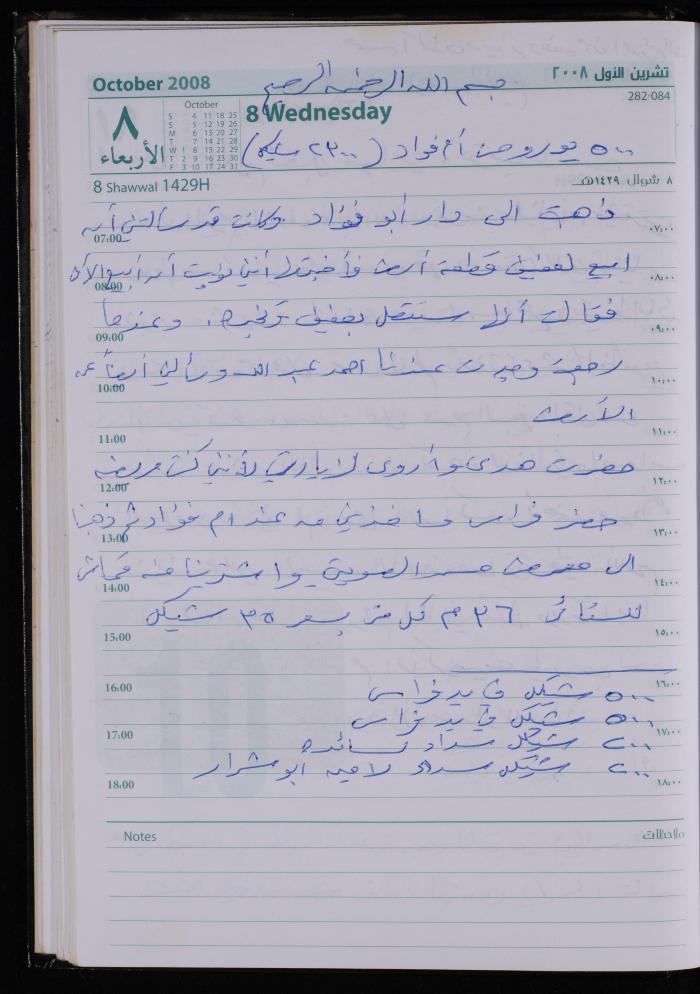 October 2008
تشرين الأول ٢٠٠٨
بسم الله الرحمن الرحيم
282-084
8 Wednesday
٨
الأربعاء
October
S 4 11 18 25
S 5 12 19 26
M 6 13 20 27
T 7 14 21 28
W 1 8 15 22 29
T 2 9 16 23 30
F 3 10 17 24 31
٥٠٠ يورو من أم فؤاد (٢٣٠٠ شيكل)
8 Shawwal 1429H
٨ شوال ١٤٢٩هـ
ذهبت الى دار أبو فؤاد وكانت قد سألتني أن
07:00
٠٧:٠٠
ابيع لعفيف قطعة أرض فأخبرتها أنني نويت أن أبيع الآن
08:00
٠٨:٠٠
فقالت أنها ستتصل بعفيف وتخبره. وعندما
09:00
٠٩:٠٠
رجعت وجدت عندنا احمد عبد الله وسألني أيضاً عن
10:00
١٠:٠٠
الأرض
11:00
١١:٠٠
حضرت هدى وأروى لزيارتي لأنني كنت مريضة
12:00
١٢:٠٠
حضر فراس وأخذني من عند ام فؤاد ثم ذهبنا
13:00
١٣:٠٠
الى معرض واشترينا منه قماش
14:00
١٤:٠٠
للستائر ٣٦ م كل متر بسعر ٣٥ شيكل
15:00
١٥:٠٠
16:00
١٦:٠٠
٥٠٠ شيكل في يد فراس
٥٠٠ شيكل في يد فراس
17:00
١٧:٠٠
٢٠٠ شيكل سداد لسائدة
٢٠٠ شيكل سداد لامين ابو شرار
18:00
١٨:٠٠
Notes
ملاحظات